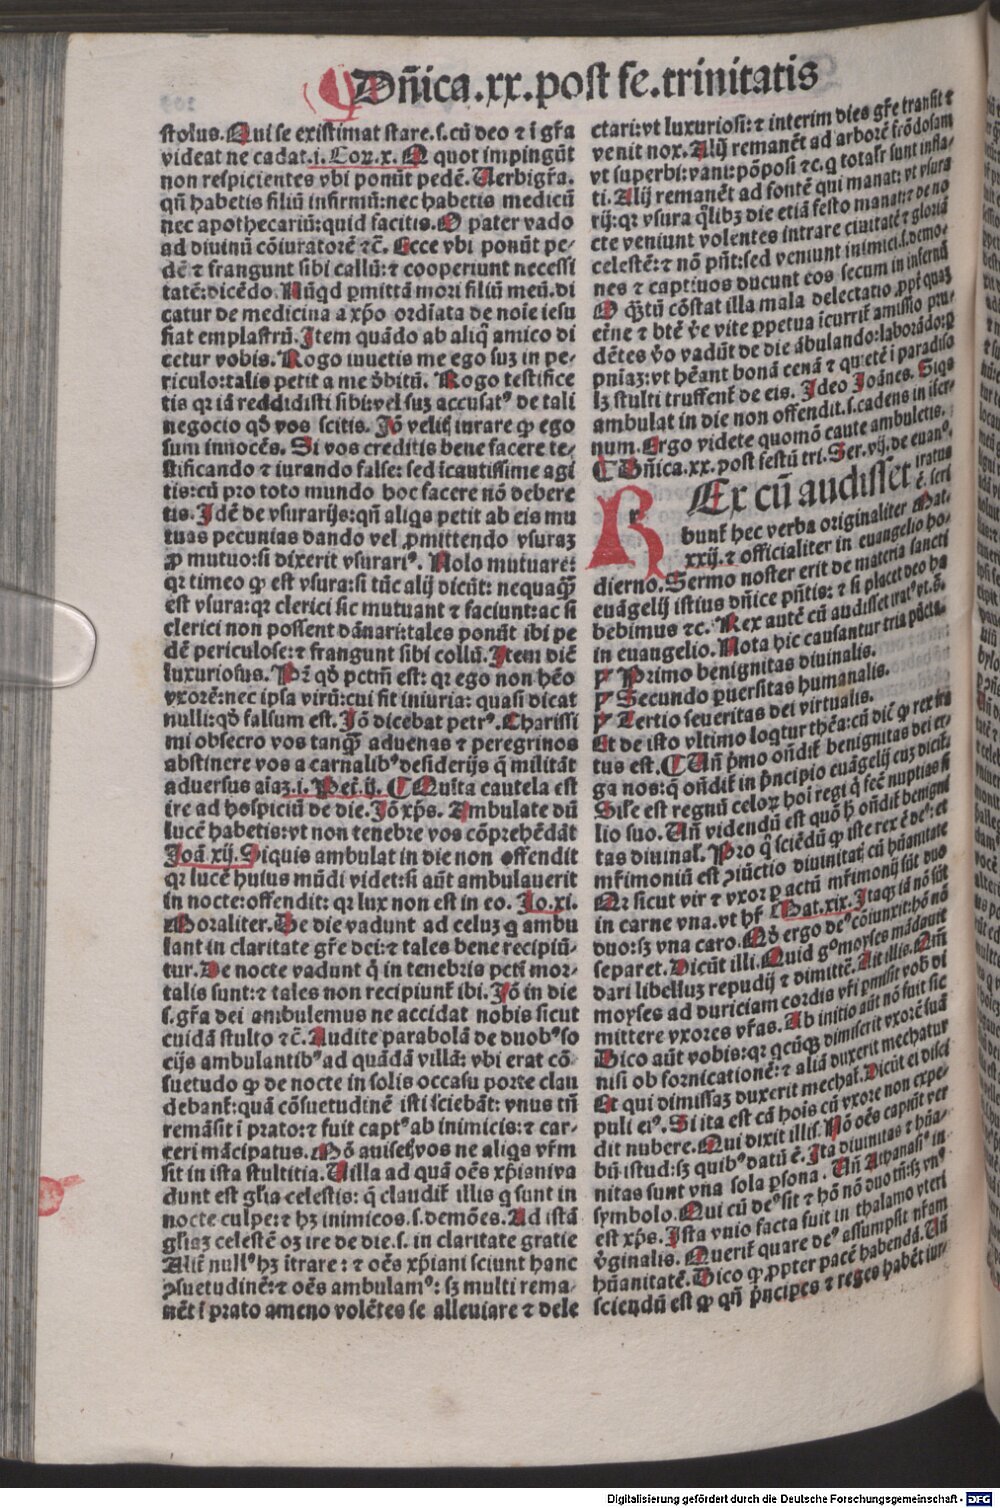 Dñica.xx.post fe.trinitatis
stolus.Qui se existimat stare.s.cũ deo ⁊ ĩ gr̃a
videat ne cadat.i.Coꝛ.x.O quot impingũt
non respicientes vbi ponũt pedẽ.Verbigr̃a.
qñ habetis filiũ infirmũ:nec habetis medicũ
nec apothecariũ:quid facitis.O pater vado
ad diuinũ cõiuratorẽ ⁊c̃.Ecce vbi ponũt pe-
dẽ ⁊ frangunt sibi collũ:⁊ cooperiunt necessi
tatẽ:dicẽdo.Nũꝗd ꝑmittã mori filiũ meũ.di
catur de medicina a xp̃o ordiata de noie iesu
fiat emplastrũ.Item quãdo ab aliꝗ amico di
cetur vobis.Rogo iuuetis me ego suꝫ in pe-
riculo:talis petit a me d̾bitũ. Rogo testifice
tis qꝛ iã reddidisti sibi:vel suꝫ accusatꝰ de tali
negocio qð vos scitis. Jõ velitꝭ iurare ꝙ ego
sum innocẽs. Si vos creditis bene facere te-
stificando ⁊ iurando false: sed ĩcautissime agi
tis:cũ pro toto mundo hoc facere nõ debere
tis.Idẽ de vsurarijs:qñ aliꝗs petit ab eis mu
tuas pecunias dando vel ꝓmittendo vsuraꝫ
ꝓ mutuo:si dixerit vsurariꝰ. Nolo mutuare:
qꝛ timeo ꝙ est vsura:si tũc alij dicũt: nequaꝗ̃
est vsura:qꝛ clerici sic mutuant ⁊ faciunt:ac si
clerici non possent dãnari:tales ponũt ibi pe
dẽ periculose:⁊ frangunt sibi collũ.Item dic̃
luxuriosus.Pꝛ̃ qð pctm̃ est: qꝛ ego non hẽo
vxorẽ:nec ipsa virũ:cui fit iniuria: quasi dicat
nulli:qð falsum est.Jõ dicebat petrꝰ.Charissi
mi obsecro vos tanꝗ̃ aduenas ⁊ peregrinos
abstinere vos a carnalibꝰ desiderijs q̃ militãt
aduersus aĩaꝫ.i.Pet̃.ij. Multa cautela est
ire ad hospiciũ de die.Jõ xp̃s. Ambulate dũ
lucẽ habetis:vt non tenebre vos cõprehẽdãt
Joã xij.Siquis ambulat in die non offendit
qꝛ lucẽ huius mũdi videt:si aũt ambulauerit
in nocte:offendit: qꝛ lux non est in eo. Jo.xi.
Moraliter.De die vadunt ad celuꝫ ꝗ ambu
lant in claritate gr̃e dei:⁊ tales bene recipiũ-
tur.De nocte vadunt q̃ in tenebris pcti mor-
talis sunt:⁊ tales non recipiunt̃ ibi.Jõ in die
s.gr̃a dei ambulemus ne accidat nobis sicut
cuidã stulto ⁊c̃.Audite parabolã de duobꝰ so
cijs ambulantibꝰ ad quãdã villã: vbi erat cõ-
suetudo ꝙ de nocte in solis occasu porte clau
debant̃:quã cõsuetudinẽ isti sciebãt: vnus tñ
remãsit ĩ prato:⁊ fuit captꝰ ab inimicis:⁊ car-
ceri mãcipatus.Mõ auiselꝭ vos ne aliꝗs vr̃m
sit in ista stultitia.Villa ad quã oẽs xp̃iani va
dunt est gl̃ia celestis: q̃ claudit̃ illis ꝗ sunt in
nocte culpe:⁊ hꝫ inimicos.s.demões.Ad istã
gl̃iaꝫ celestẽ oꝫ ire de die.s. in claritate gratie
Alit̃ nullꝰ hꝫ ĩtrare: ⁊ oẽs xp̃iani sciunt hanc
ꝯsuetudinẽ:⁊ oẽs ambulamꝰ: sꝫ multi rema-
nẽt ĩ prato ameno volẽtes se alleuiare ⁊ dele
ctari:vt luxuriosi:⁊ interim dies gr̃e transit ⁊
venit nox.Alij remanẽt ad arborẽ frõdosam
vt superbi:vani:põposi ⁊c.ꝗ totalr̃ sunt infla-
ti.Alij remanẽt ad fontẽ qui manat: vt vsura
rij:qꝛ vsura q̃libꝫ die etiã festo manat:⁊ de no
cte veniunt volentes intrare ciuitatẽ ⁊ gloriã
celestẽ:⁊ nõ pñt:sed veniunt inimici.s.demo-
nes ⁊ captiuos ducunt eos secum in infernũ
O ꝗ̃tũ cõstat illa mala delectatio ꝓpt̃ quaꝫ
et̃ne ⁊ btẽ v̾e vite ꝑpetua ĩcurrit̃ amissio pru-
dẽtes v̾o vadũt de die ãbulando:laborãdo:ꝑ
pniaꝫ:vt hẽant bonã cenã ⁊ quietẽ ĩ paradiso
lꝫ stulti truffent̃ de eis. Ideo Joãnes. Siqs
ambulat in die non offendit.s.cadens in ifer-
num.Ergo videte quomõ caute ambuletis.
Dñica.xx.post festũ tri.Ser.vij.de euanᵒ.
REx cũ audisset iratus
ẽ.scri
bunt̃ hec verba originaliter Mat.
xxij.⁊ officialiter in euangelio ho-
dierno.Sermo noster erit de materia sancti
euãgelij istius dñice pñtis:⁊ si placet deo ha
bebimus ⁊c. Rex autẽ cũ audisset iratꝰ vt.s.
in euangelio.Nota hic causantur tria pũcta.
Primo benignitas diuinalis.
Secundo ꝑuersitas humanalis.
Tertio seueritas dei virtualis.
Et de isto vltimo loꝗtur thẽa:cũ dic̃ ꝙ rex ira
tus est. Cuñ p̾mo oñdit̃ benignitas dei er-
ga nos:q̃ oñdit̃ in p̾ncipio euãgelij cuꝫ dicit̃.
Sil̃e est regnũ celoꝝ hoi regi q̃ fec̃ nuptias fi
lio suo. Uñ videndũ est quõ h̾ oñdit̃ benigni
tas diuinal̃.Pro q̃ sciẽdũ ꝙ iste rex ẽ deꝰ:et
mr̃imoniũ est ꝯiũctio diuinitatꝭ cũ hũanitate
Nr̃ sicut vir ⁊ vxor ꝑ actũ mr̃imonij sũt duo
in carne vna.vt hr̃ Mat.xix.Itaqꝫ iã nõ sũt
duo:sꝫ vna caro.Qð ergo deꝰ cõiunxit:hõ nõ
separet.Dicũt illi.Quid gᵒ moyses mãdauit
dari libelluꝫ repudij ⁊ dimittẽ.Ait illis.Qm̃
moyses ad duriciam cordis vr̃i ꝑmisit vob̾ di
mittere vxores vr̃as.Ab initio aũt nõ fuit sic
Dico aũt vobis:qꝛ ꝗcũqꝫ dimiserit vxorẽ suã
nisi ob fornicationẽ:⁊ aliã duxerit mechatur
Et qui dimissaꝫ duxerit mechat̃.Dicũt ei disci
puli eiꝰ.Si ita est cã hois cũ vxore non expe-
dit nubere.Qui dixit illis.Nõ oẽs capiũt ver
bũ istud:sꝫ quibꝰ datũ ẽ.Ita diuinitas ⁊ hũa-
nitas sunt vna sola ꝑsona. Uñ Athanasiꝰ in
symbolo.Qui cũ deꝰ sit ⁊ hõ nõ duo tñ:sꝫ vnꝰ
est xp̃s.Ista vnio facta fuit in thalamo vteri
v̾ginalis. Querit̃ quare deꝰ assumpsit nr̃am
hũanitatẽ.Dico ꝙ ꝓpter pacẽ habendã.Uñ
sciendũ est ꝙ qñ p̾ncipes ⁊ reges habẽt iur-
Digitalisierung gefördert durch die Deutsche Forschungsgemeinschaft - DFG